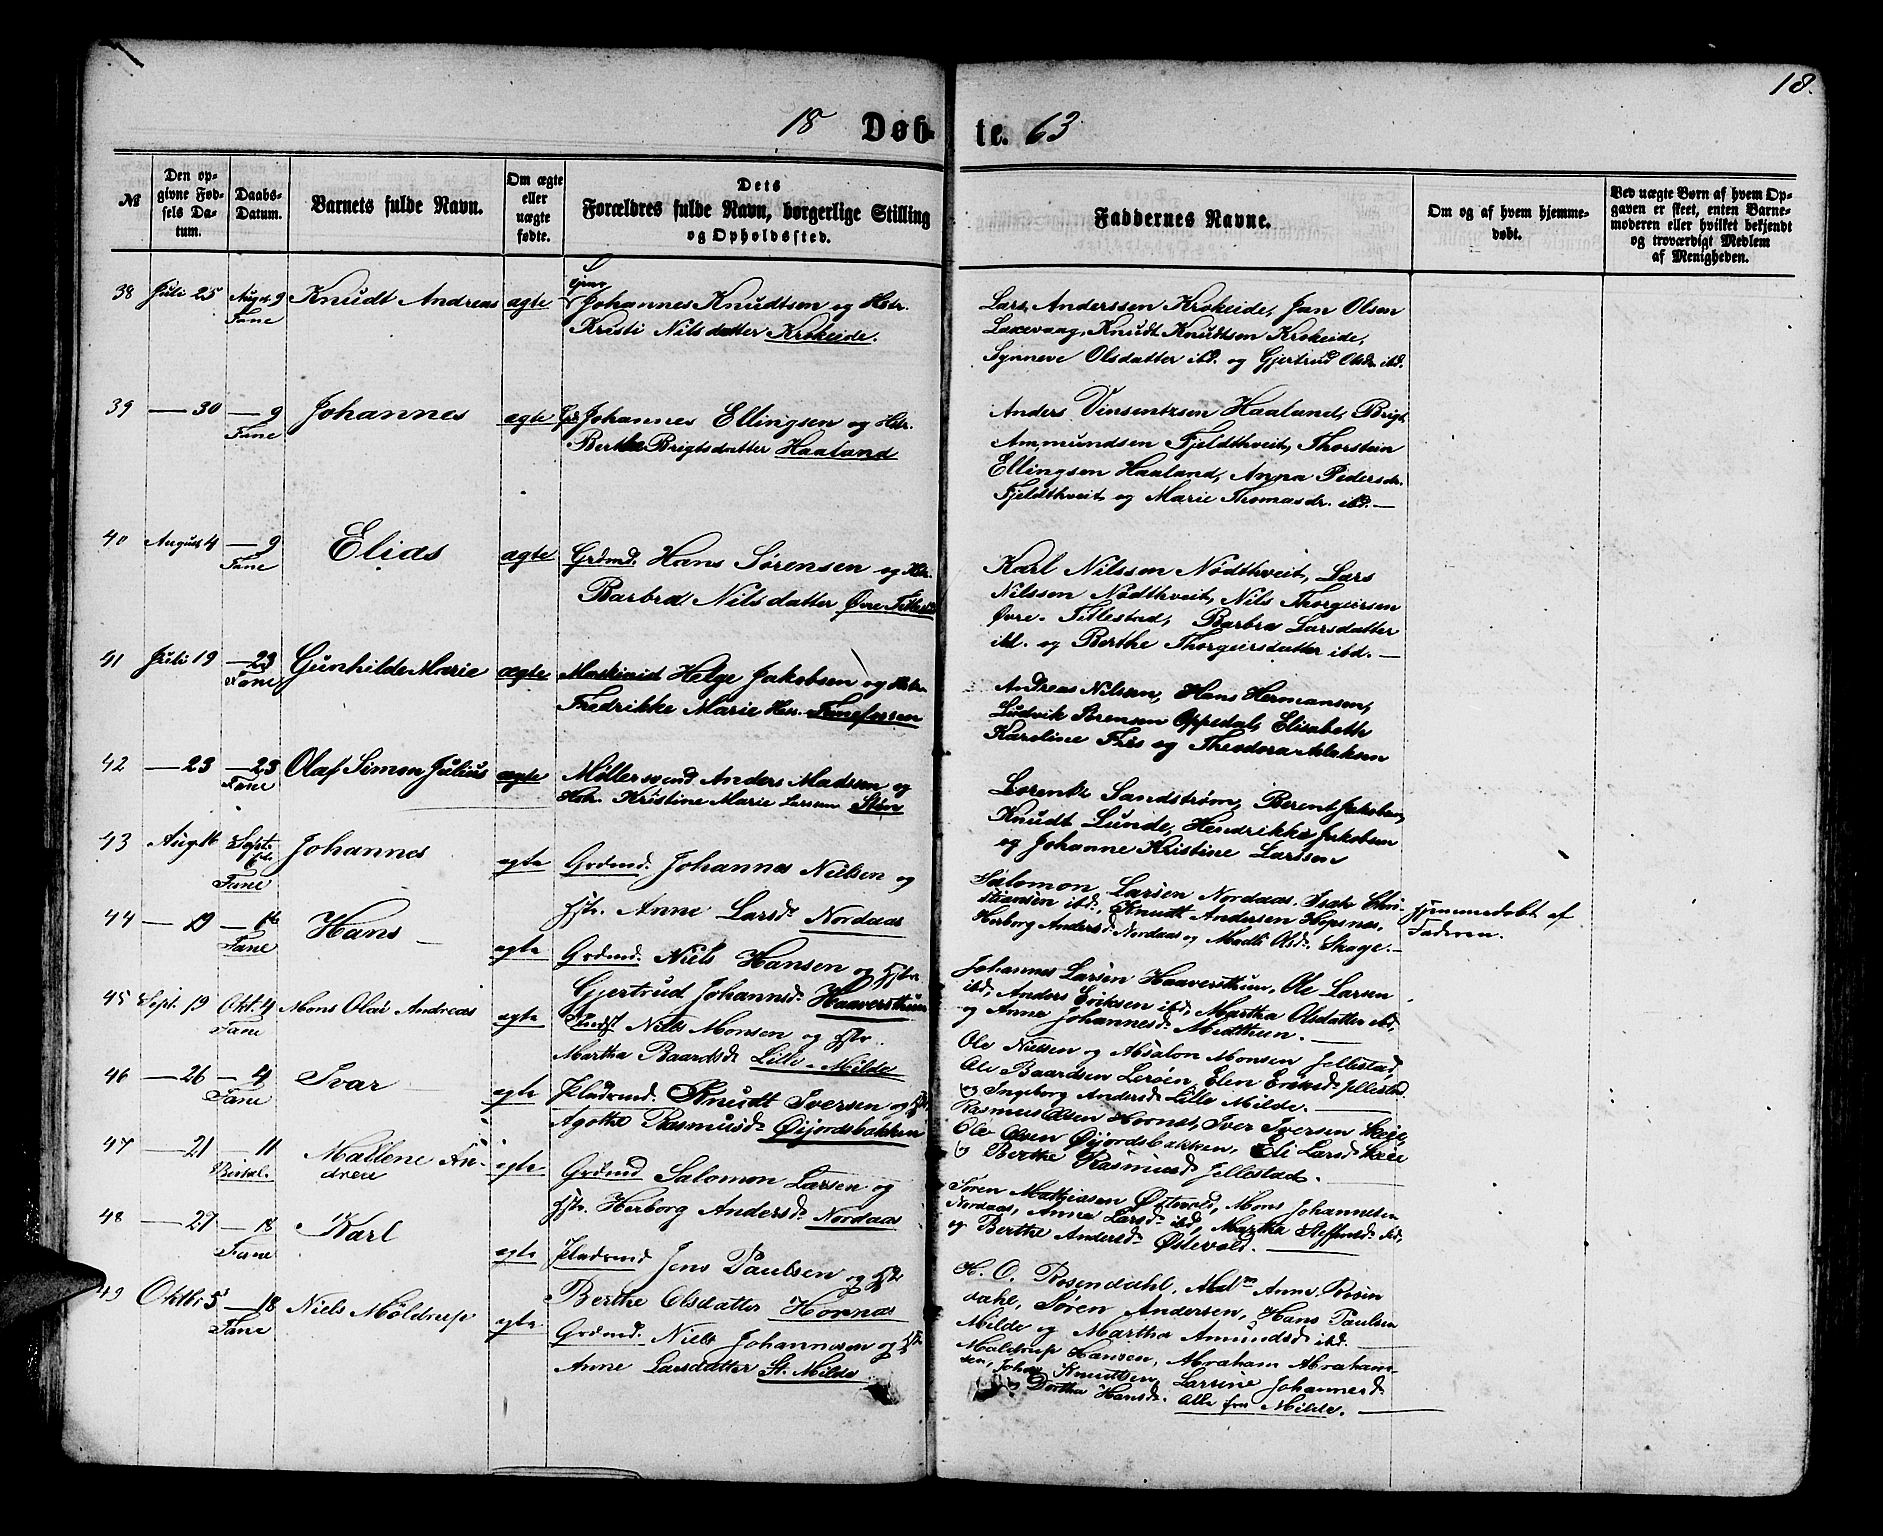 18.
18 Døb- te. 63
№
Den opgivne Fødsels Datum.
Daabs-Datum.
Barnets fulde Navn.
Om ægte eller uægte fødte.
Dets Forældres fulde Navn, borgerlige Stilling og Opholdssted.
Faddernes Navne.
Om og af hvem hjemmedøbt.
Ved uægte Børn af hvem Opgaven er skeet, enten Barnemoderen eller hvilket bekjendt og troværdigt Medlem af Menigheden.
38 Juli 25 Aug. 9 Fane Knudt Andreas ægte Johannes Knudtsen og Hstr.
Kristi Nilsdatter Krokeide.
Lars Anderssen Krokeide, Jan Olsen
Laxevaag, Knudt Knudtsen Krokeide,
Synneve Olsdatter ibd. og Gjertrud Olsdr. ibd.
39 — 30 — 9 Fane Johannes ægte Johannes Ellingsen og Hstr.
Bertha Brigtsdatter Haaland
Anders Vinsentzsen Haaland, Brigt
Ammundsen Fjeldthveit, Thorstein
Ellingsen Haaland, Anna Pedersdr.
Fjeldthveit og Marie Thomasdr. ibd. —
40 August 4 — 9 Fane Elias ægte Grdmd. Hans Sørensen og Hstr.
Barbra Nilsdatter Øvre Titlestad
Karl Nilssen Nødthveit, Lars
Nilssen Nødthveit, Nils Thorgiersen
Øvre Titlestad, Barbra Larsdatter
ibd. og Berthe Thorgiersdatter ibd. —
41 Juli 19 — 23 Fane Gunhilde Marie ægte Maskinist Helge Jakobsen og Hstr.
Fredrikke Marie Fanefossen
Andreas Nilsen, Hans Hermansen,
Ludvik Sørensen Oppedal, Elisabeth
Karoline Friis og Theodora Aslaksen
42 — 23 — 23 Fane Olaf Simon Julius ægte Møllersvend Anders Madsen og
Hstr. Kristine Marie Larssen Stön
Lorentz Sandstrøm, Berent Jakobsen,
Knudt Lunde, Hendrikke Jakobsen
og Johanne Kristine Larssen
43 Aug. 16 Septr. 6te Fane Johannes ægte Grdmd. Johannes Nielsen og
Hstr. Anne Larsd. Nordaas
Salomon Larsen Nordaas, Isak Christiansen ibd., Knudt Andersen Hopsnes,
Herborg Andersd. Nordaas og Madli Olsd. Skage. —
hjemmedøbt af
Faderen.
44 — 19 — 6te Fane Hans — ægte Grdmd. Niels Hansen og Hstr.
Gjertrud Johannsd. Haaversthun
Johannes Larsen Haaversthun, Ole Larsen
ibd, Anders Eriksen ibd, Martha Olsdatter ibd,
og Anna Johannesd. Midtthun. —
45 Sept. 19 Okt. 4 Fane Mons Olai Andreas ægte Niels Monsen og Hstr.
Martha Baardsd. Lille-Milde
Ole Nielsen og Absalon Monsen Jellestad,
Ole Baardsen Lerøen, Elen Eriksd. Jellestad
og Ingeborg Andersd. Lille Milde. —
46 — 26 — 4 Fane Ivar ægte Pladsmd. Knudt Iversen og Hstr.
Agothe Rasmusd. Øijordsbakken
Rasmus Olsen Hornes, Iver Iversen Skeie,
Ole Olsen Øijordsbakken, Eli Larsd. Skeie
og Berthe Rasmusd. Jellestad. —
47 — 21 — 11 Birkel. Mallene Andrea ægte Grdmd Salomon Larsen og
Hstr. Herborg Andersd. Nordaas
Søren Mathiasen Østevold, Mons Johannesen
Nordaas, Anna Larsd. ibd, Martha Steffensd. ibd,
og Berthe Andersd. Østevold. —
48 — 27 — 18 Fane Karl ægte Pladsmd Jens Paulsen og Hstr
Berthe Olsdatter Hornæs
H. O. Rosendahl, Madm. Anne Rosendahl, Søren Andersen, Hans Paulsen
Milde og Martha Amundsd. ibd.
49 Oktbr 5 — 18 Fane Niels Möldrup ægte. Grdmd. Niels Johannesen og Hstr
Anne Larsdatter St. Milde
Möldrup Hansen, Abraham Abrahamsen, Johan Knudtsen, Larsine Johannesd
og Dorthea Hansd. Alle fra Milde. —